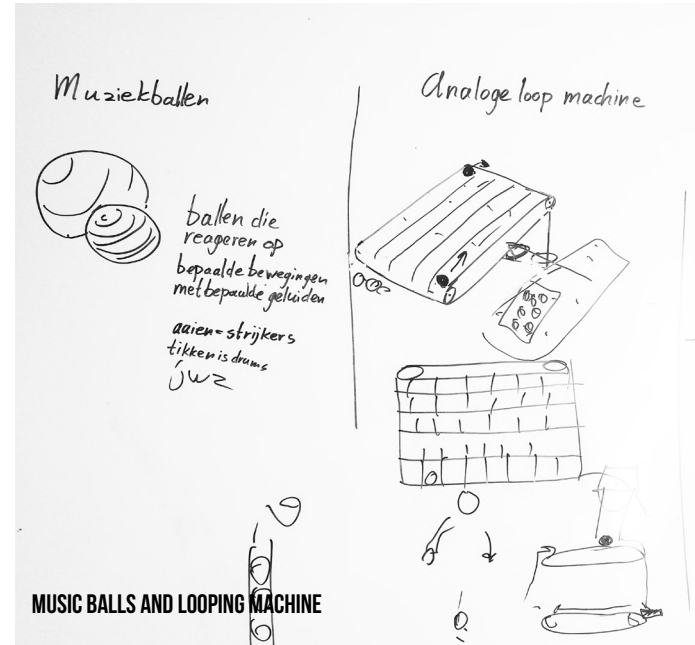 Muziekballen
ballen die
reageren op
bepaalde bewegingen
met bepaalde geluiden
aaien = strijkers
tikken is drums
jwz
Analoge loop machine
MUSIC BALLS AND LOOPING MACHINE